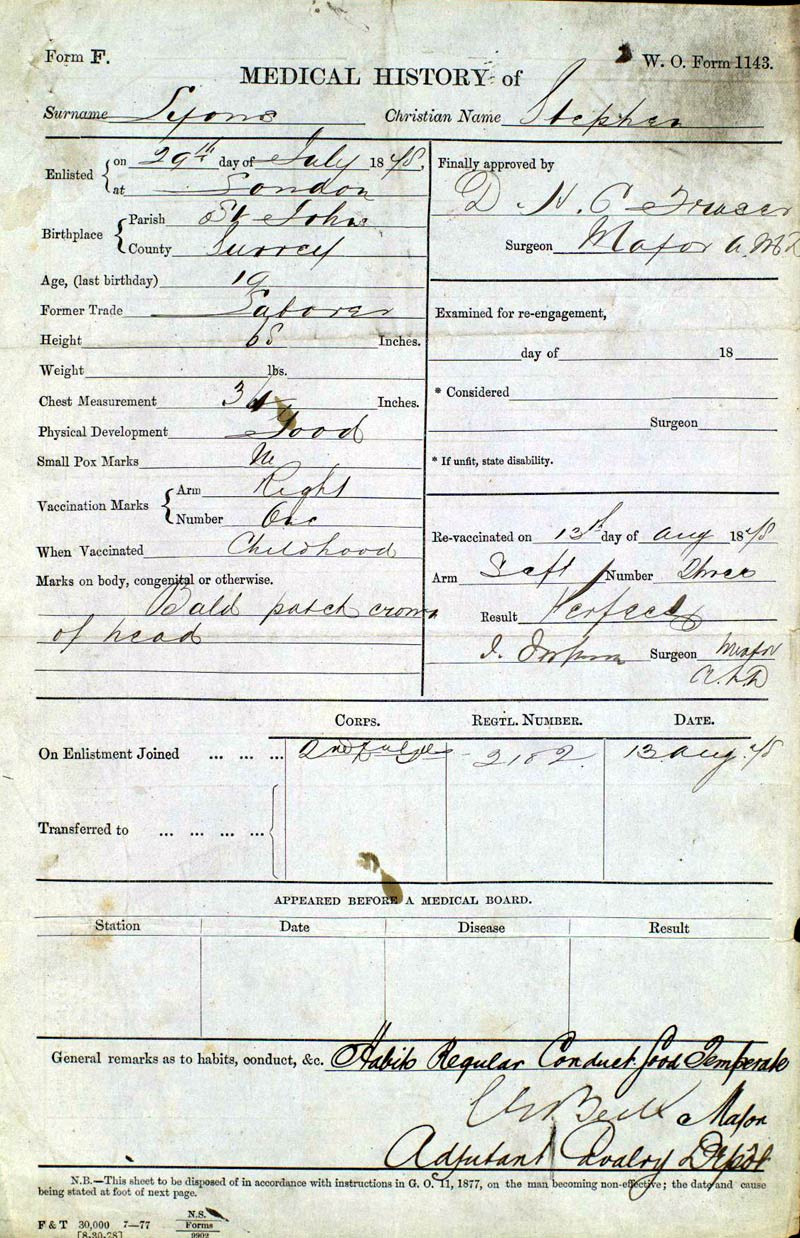 Form F.
W. O. Form 1143.
MEDICAL HISTORY of
Surname Lyons Christian Name Stephen
Enlisted on 29th day of July 1878.
at London
Birthplace Parish St. Johns
County Surrey
Age, (last birthday) 19
Former Trade Laborer
Height 65 Inches.
Weight lbs.
Chest Measurement 34 Inches.
Physical Development Good
Small Pox Marks
Vaccination Marks Arm Right
Number One
When Vaccinated Childhood
Marks on body, congenital or otherwise.
Bald patch crown
of head
Finally approved by
D. H. C. Fraser
Surgeon Major A.M.D
Examined for re-engagement,
day of 18
* Considered
Surgeon
* If unfit, state disability.
Re-vaccinated on 13th day of Aug 1878
Arm Left Number Three
Result Perfect
Surgeon Major
Corps. Regtl. Number. Date.
On Enlistment Joined ... ... ... 2nd 2182 13 Aug. 78
Transferred to ... ... ... ...
APPEARED BEFORE A MEDICAL BOARD.
Station Date Disease Result
General remarks as to habits, conduct, &c. Habits Regular Conduct Good Temperate
Beck Major
Adjutant Cavalry Depôt
N.B.—This sheet to be disposed of in accordance with instructions in G. O. 11, 1877, on the man becoming non-effective; the date and cause
being stated at foot of next page.
F & T 30,000 7—77
[8-30-78]
N.S.
Forms
9902